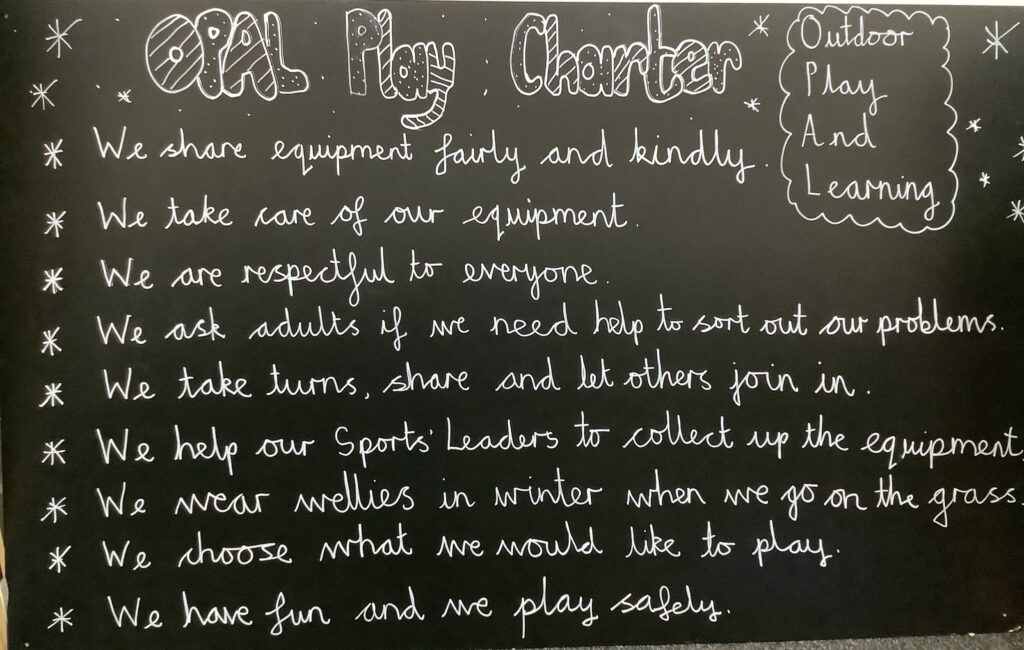 OPAL Play Charter
Outdoor
Play
And
Learning
* We share equipment fairly and kindly.
* We take care of our equipment.
* We are respectful to everyone.
* We ask adults if we need help to sort out our problems.
* We take turns, share and let others join in.
* We help our Sports' Leaders to collect up the equipment.
* We wear wellies in winter when we go on the grass.
* We choose what we would like to play.
* We have fun and we play safely.